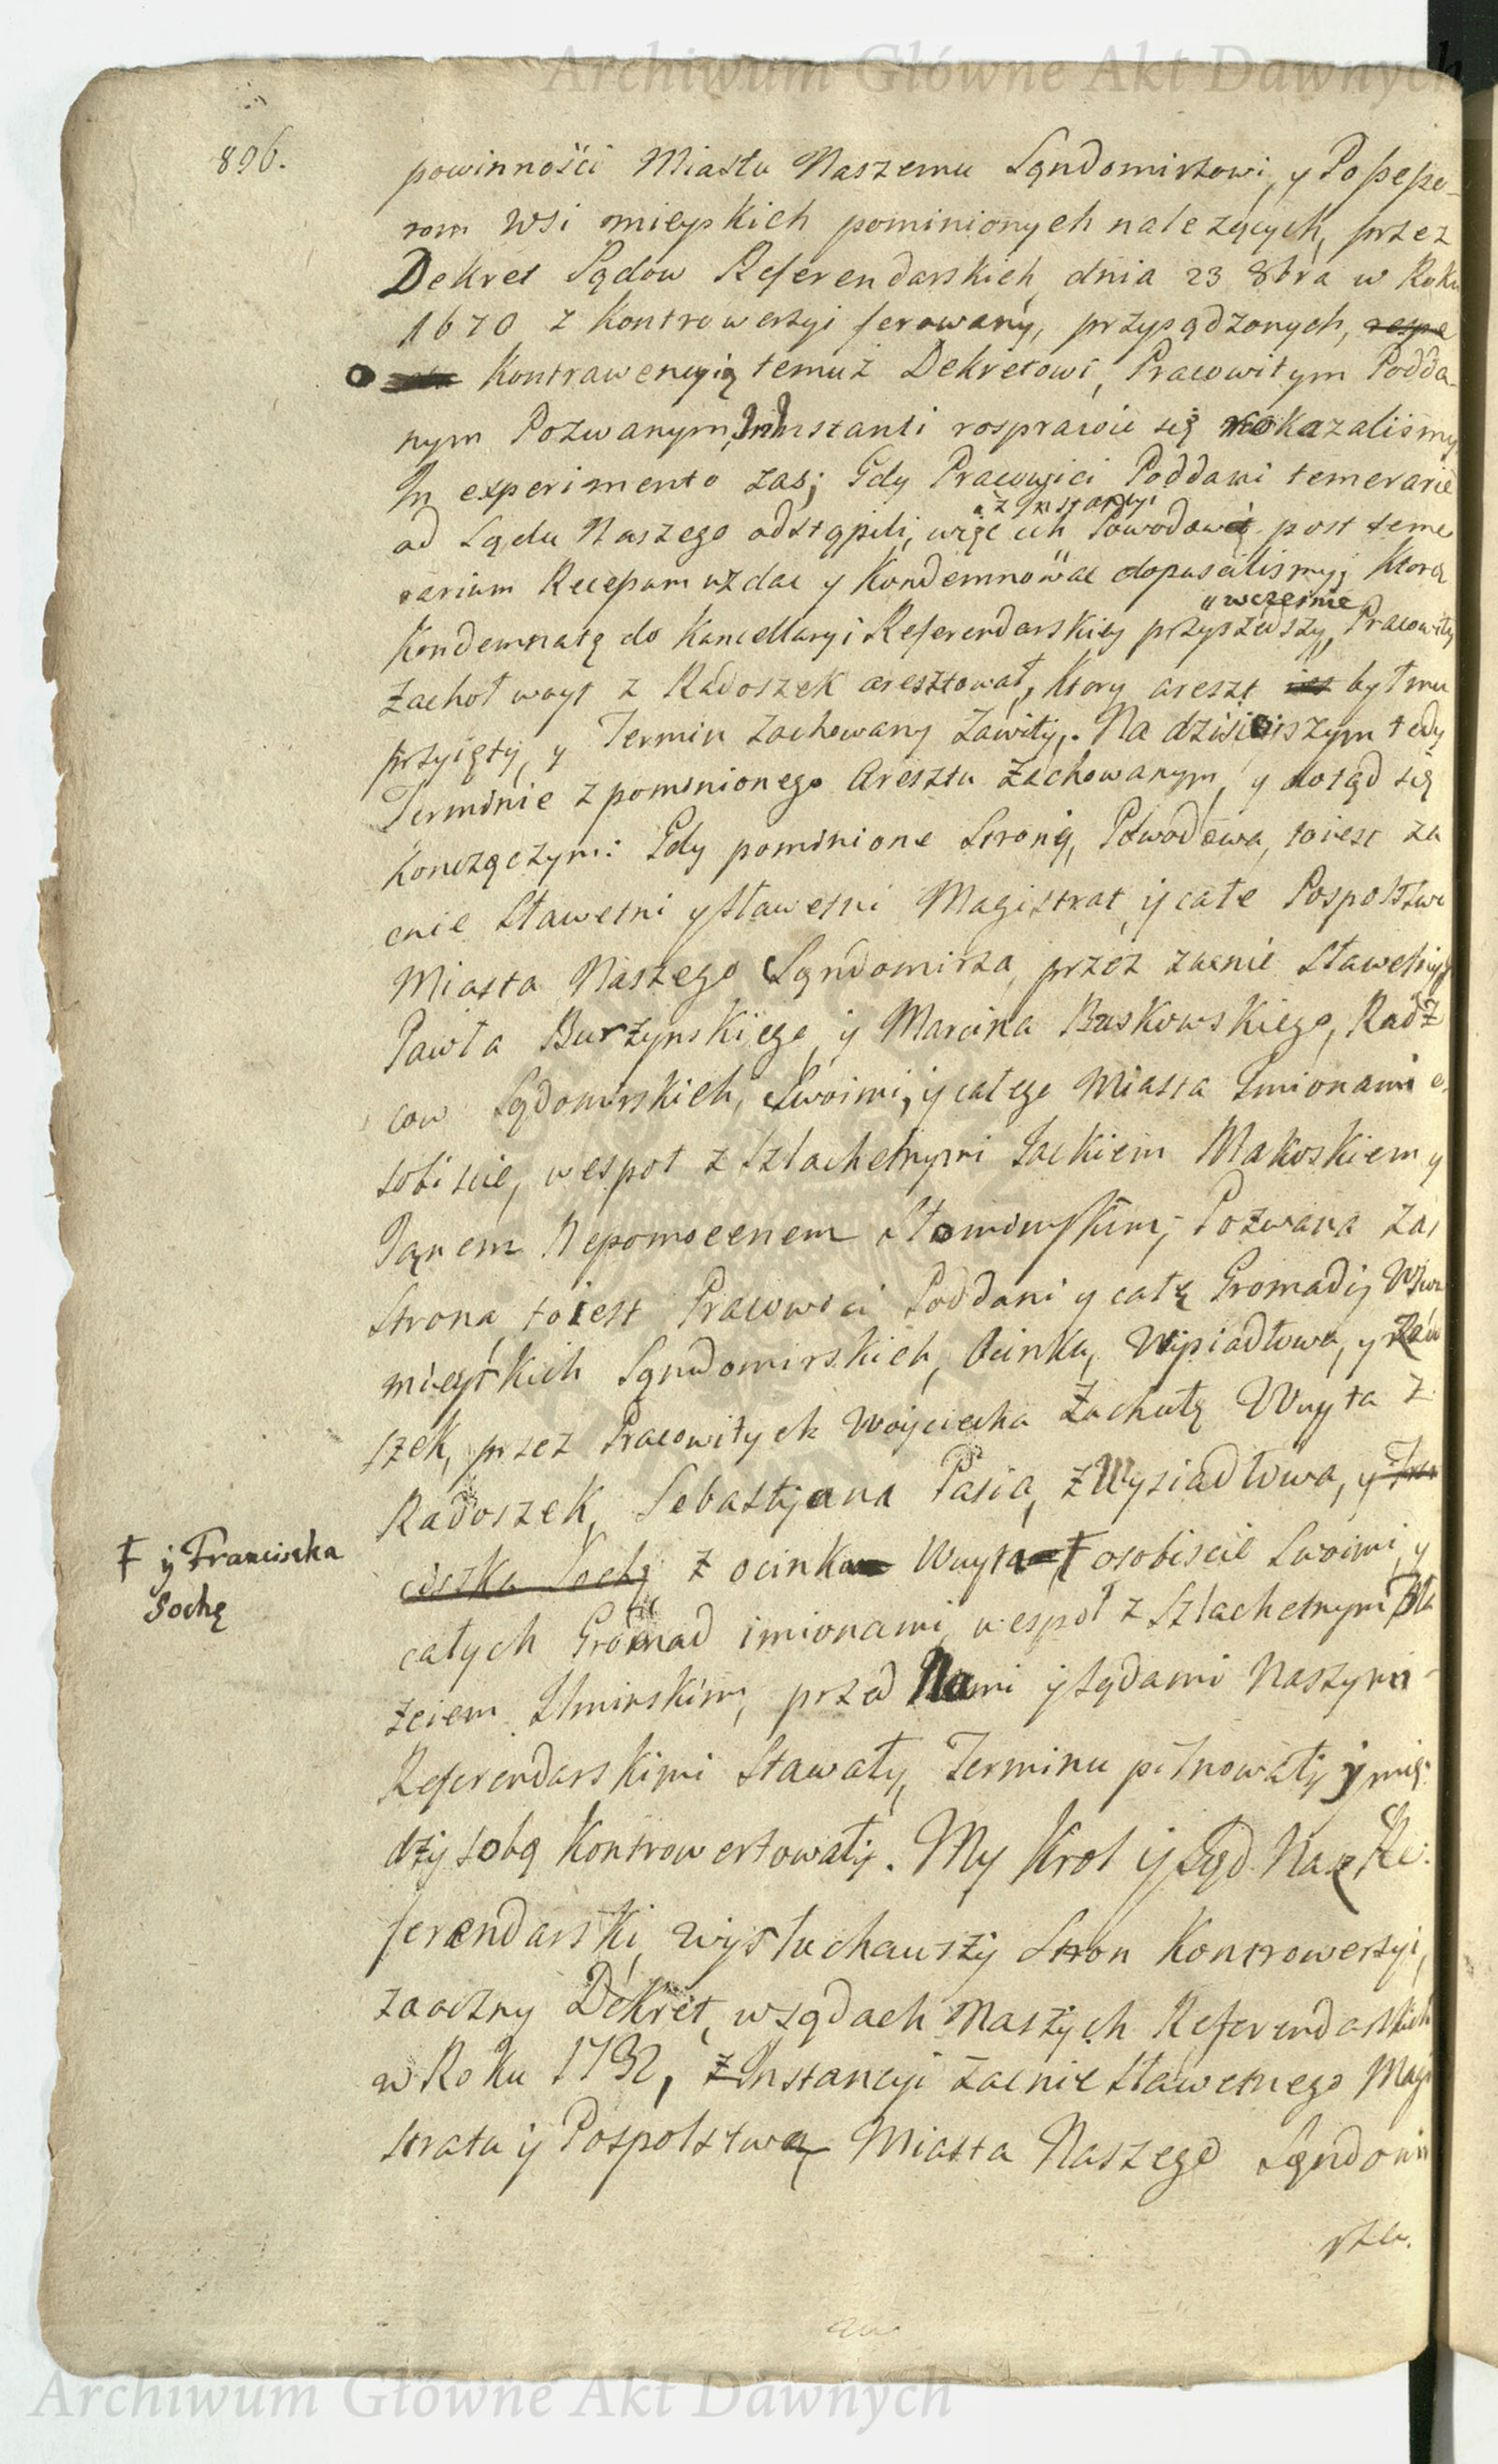 Archiwum Główne Akt Dawnych
896.
powinności Miastu Naszemu Sąndomirzowi, y Possesso-
rom Wsi mieyskich pominionych należących, przez
Dekret Sądow Referendarskich, dnia 23 8bra w Roku
1670 z Kontrowersyi ferowany, przysądzonych,
o Kontrawencyią temuż Dekretowi, Pracowitym Podda-
nym Pozwanym, Instanti rosprawić się nakazalismy
In experimento zaś; Gdy Pracowici Poddani temerarie
z Instancyi
od Sądu Naszego odstąpili, więc ich Powodową post teme
rarium Recessum wzdać y Kondemnować dopuscilismy; Ktorą
wcześnie
Kondemnatę do Kancellaryi Referendarskiey przyszedszy, Pracowity
Zachoł woyt z Radoszek aresztował, Ktory areszt iest był mu
przyięty, y Termin zachowany zawity. Na dzisieiszym tedy
Terminie z pominionego Aresztu Zachowanym, y dotąd się
Konczączym: Gdy pominione Strony, Powodowa, to iest za
cnie Sławetni y Sławetni Magistrat y całe Pospolstwo
Miasta Naszego Sąndomirza, przez zacnie Sławetnych
Pawła Burzynskiego y Marcina Buskowskiego, Radz
cow Sądomirskich, Swoimi, y całego Miasta Imionami o
sobiscie, wespoł z Szlachetnymi Jackiem Makoskiem y
Janem Nepomocenem Słominskim; Pozwana Zaś
Strona to iest Pracowici Poddani y całę Gromady Wsiow
mieyskich Sąndomirskich, Ocinka, Wysiadłowa, y Rado
szek, przez Pracowitych Woyciecha Zachułę Woyta z
Radoszek, Sebastyana Pasia, z Wysiadłowa, y Fran
ciszka Sochę z ocinka Woyta Ŧ osobiscie Swoimi, y
Ŧ y Franciszka
Sochę
całych Gromad imionami, wespoł z Szlachetnym Bła
żeiem Slmirskim, przed Nami y Sądami Naszymi
Referendarskimi Stawały, Terminu pilnowały y mię
dzy sobą Kontrowertowały. My Krol y Sąd Nasz Re-
ferendarski, wysłuchawszy Stron Kontrowersyi,
zaoczny Dekret, w sądach Naszych Referendarskich
w Roku 1792, z Instancyi zacnie Sławetnego Magi
stratu y Pospolstwa Miasta Naszego Sąndomi
rza.
Archiwum Główne Akt Dawnych